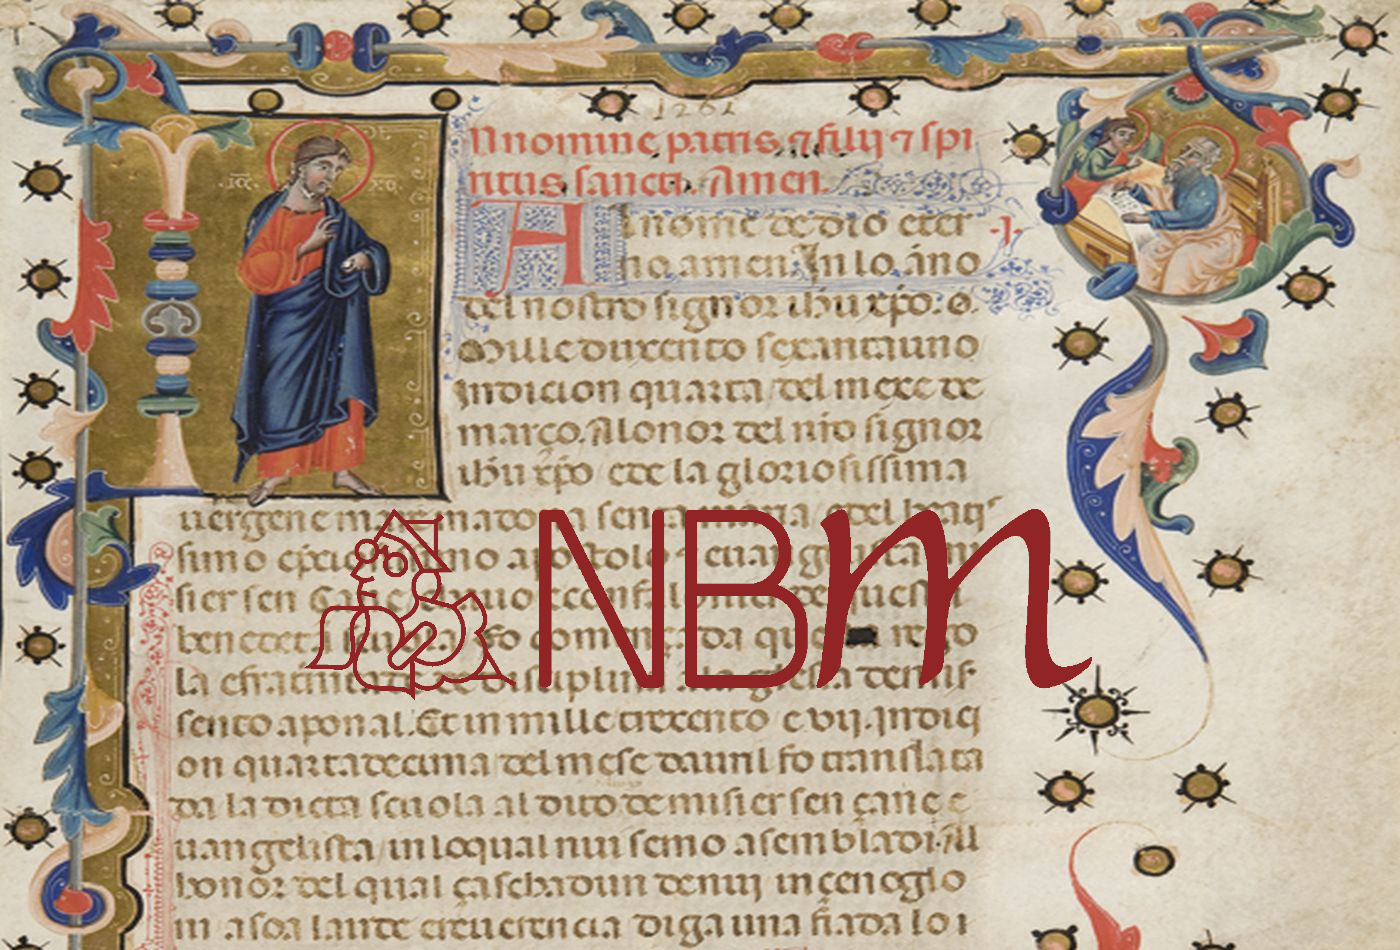 1261
IC XC
N nomine patris ⁊ filij ⁊ spi
ritus sancti. Amen.
Al nome de dio eter
no. amen. In lo ano
del nostro signor ihu xpo. o.
Mille duxento sexantauno
Indicion quarta del mexe de
março. Alonor del nro signor
ihu xpo ede la gloriosissima
uergene madona senta maria edel beatis
simo apostolo ⁊ euangelista mi
sier sen
benedeta scuola. fo començada
la
NBm
sento aponal. Et in mille trexento e vij. Indici
on quartadecima del mese dauril fo transla ta
da la dicta scuola al dito de misier sen çane e
uangelista. in loqual nui semo asembladi. All
honor del qual çaschadun denui in çenoglo
in asoa laude ereuerencia diga una fiada lo